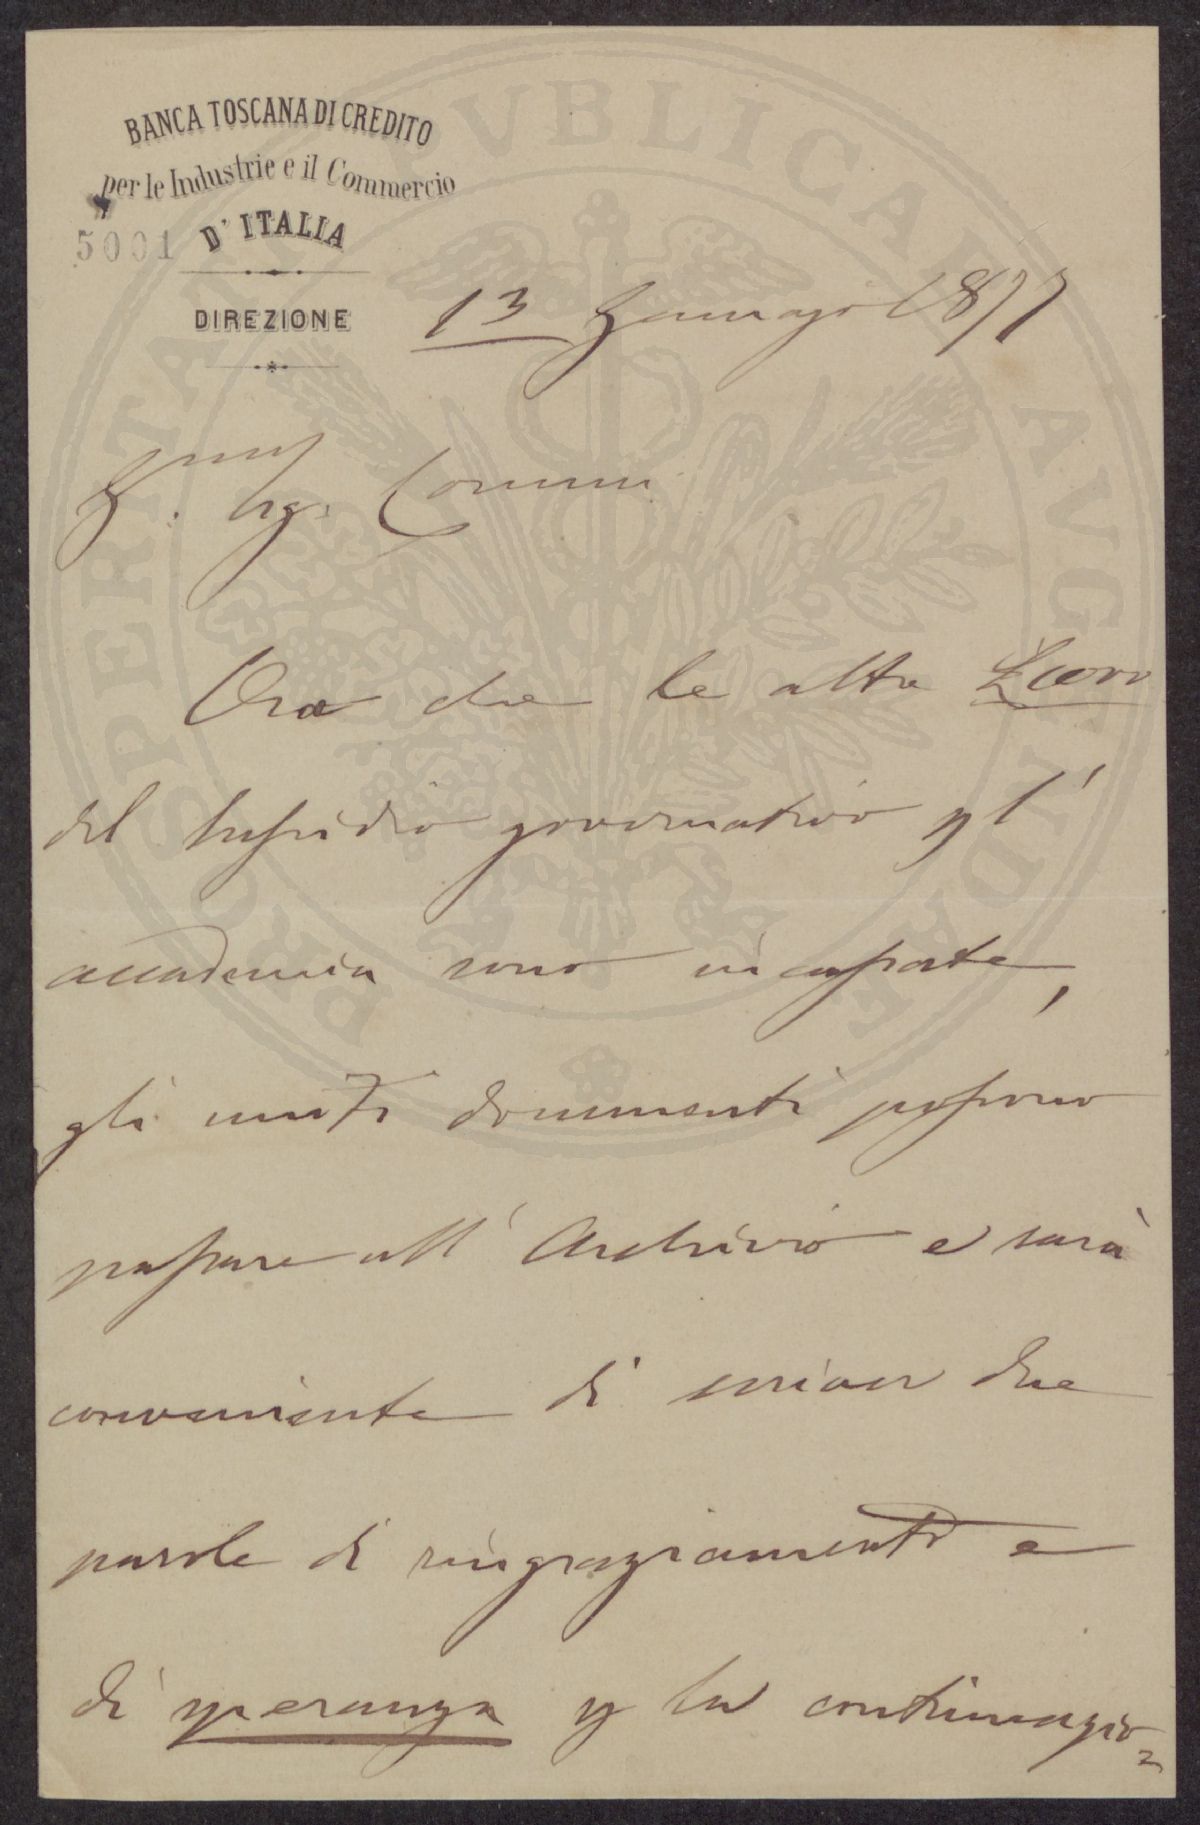 BANCA TOSCANA DI CREDITO
per le Industrie e il Commercio
5001 D'ITALIA
DIREZIONE
13 Gennajo 1877
Sig. Comm
Ora che le altre
del sussidio governativo pl'
accademia sono incassate,
gli uniti documenti possono
passare all'Archivio e sarà
conveniente di scriver due
parole di ringraziamento e
di speranza p la continuazio=
PROSPERITATI PVBLICAE AVGENDAE